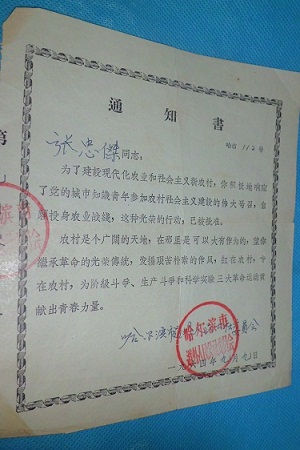 通知書
哈市 112 号
张忠傑同志:
为了建設現代化农业和社会主义新农村,你积极地响应
了党的城市知識青年参加农村社会主义建設的伟大号召,自
願投身农业战綫,这种光荣的行动,已被批准。
农村是个广闊的天地,在那里是可以大有作为的,望你
継承革命的光荣傳統,发揚艰苦朴素的作风,紅在农村,专
在农村,为阶級斗爭、生产斗爭和科学实驗三大革命运动貢
献出青春力量。
哈尔滨
一九六四年 月 日
第